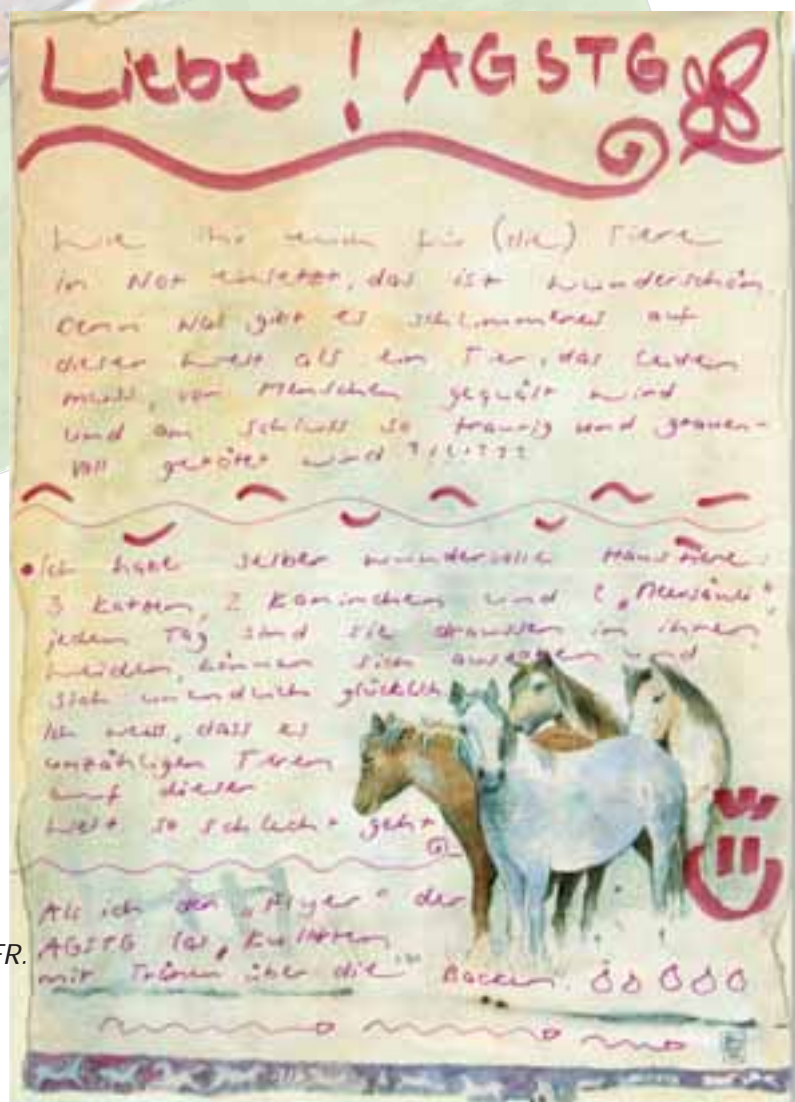 Liebe! AGSTG
Wie ihr euch für (die) Tiere
in Not einsetzt, das ist wunderschön.
Denn was gibt es schlimmeres auf
dieser Welt als ein Tier, das leiden
muss, von Menschen gequält wird
und am Schluss so traurig und grauen-
voll getötet wird
Ich habe selber wundervolle Haustiere:
3 Katzen, 2 Kaninchen und 2 „Meersäuli“,
jeden Tag sind sie draussen in ihren
Weiden, können sich und
sich unendlich glücklich
Ich weiss, dass es
unzähligen Tieren
auf dieser
Welt so schlecht geht
Als ich den „Flyer“ der
AGSTG las, kullerten
mir Tränen über die Backen.
FR.